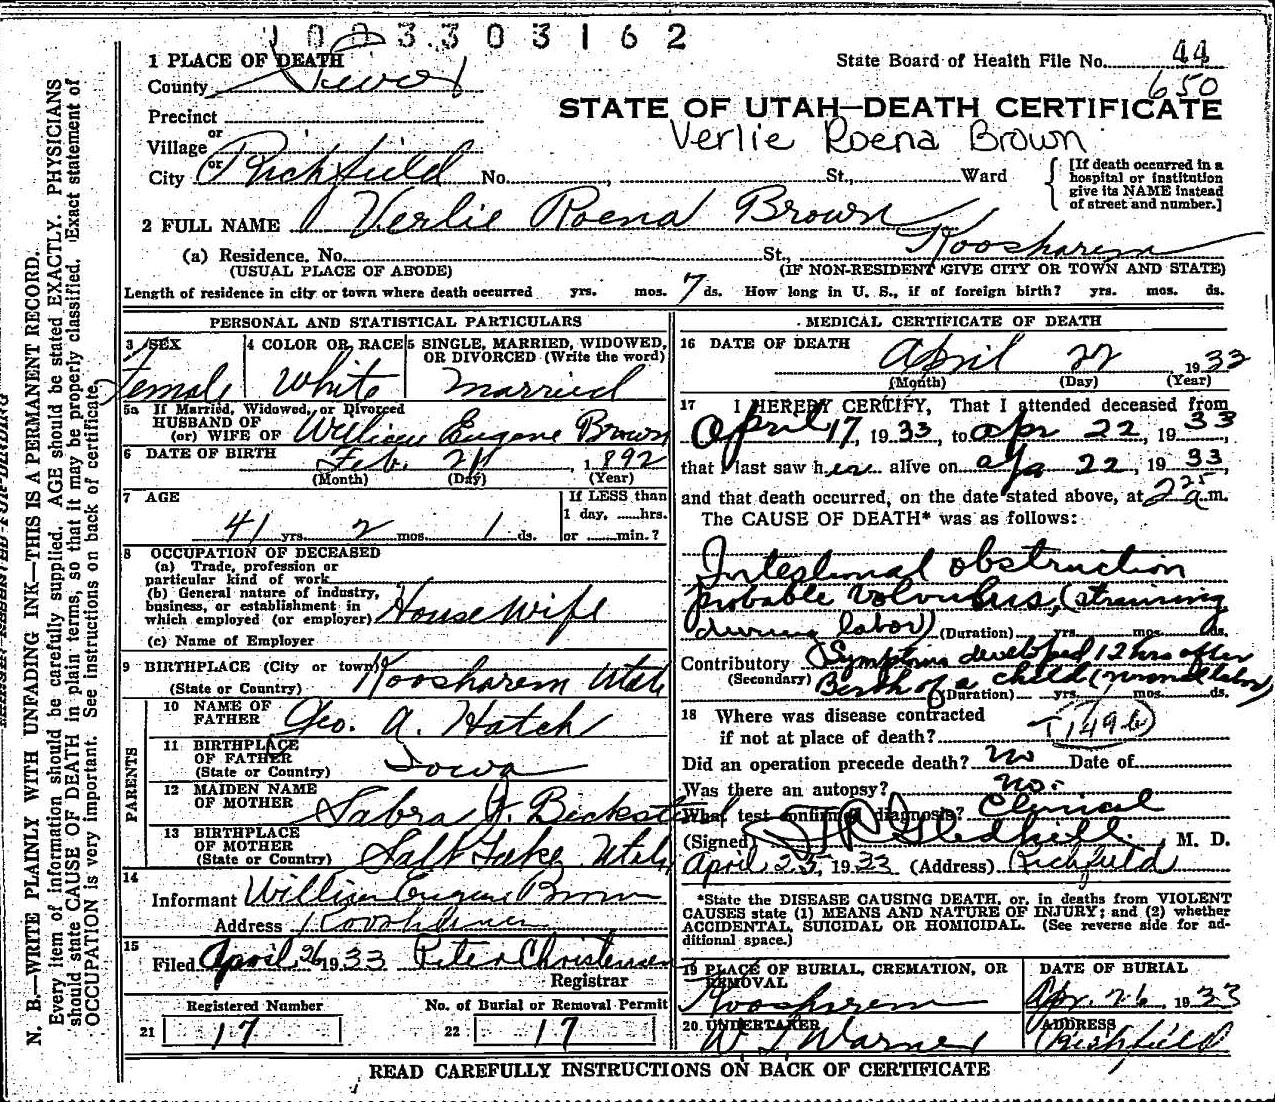 1003303162
1 PLACE OF DEATH
State Board of Health File No. 44
County Sevier
650
Precinct
STATE OF UTAH—DEATH CERTIFICATE
or
Village
Verlie Roena Brown
or
City Richfield No. , St., Ward
[If death occurred in a
hospital or institution
give its NAME instead
of street and number.]
2 FULL NAME Verlie Roena Brown
(a) Residence. No. St., Koosharem
(USUAL PLACE OF ABODE) (IF NON-RESIDENT GIVE CITY OR TOWN AND STATE)
Length of residence in city or town where death occurred yrs. mos. 7 ds. How long in U. S., if of foreign birth? yrs. mos. ds.
PERSONAL AND STATISTICAL PARTICULARS
3 SEX 4 COLOR OR RACE 5 SINGLE, MARRIED, WIDOWED,
OR DIVORCED (Write the word)
Female White Married
5a If Married, Widowed, or Divorced
HUSBAND OF
(or) WIFE OF William Eugene Brown
6 DATE OF BIRTH Feb. 21, 1892
(Month) (Day) (Year)
7 AGE
If LESS than
1 day, hrs.
41 yrs. 2 mos. 1 ds. or min.?
8 OCCUPATION OF DECEASED
(a) Trade, profession or
particular kind of work
(b) General nature of industry,
business, or establishment in
which employed (or employer) House Wife
(c) Name of Employer
9 BIRTHPLACE (City or town)
(State or Country) Koosharem Utah
PARENTS
10 NAME OF
FATHER Geo. A. Hatch
11 BIRTHPLACE
OF FATHER
(State or Country) Iowa
12 MAIDEN NAME
OF MOTHER Sabra J. Beckstead
13 BIRTHPLACE
OF MOTHER
(State or Country) Salt Lake Utah
14
Informant William Eugene Brown
Address Koosharem
15
Filed April 26 1933 Peter Christensen
Registrar
Registered Number No. of Burial or Removal Permit
21 17 22 17
MEDICAL CERTIFICATE OF DEATH
16 DATE OF DEATH
April 22 1933
(Month) (Day) (Year)
17 I HEREBY CERTIFY, That I attended deceased from
April 17, 1933, to Apr 22, 1933,
that I last saw her alive on Apr 22, 1933,
and that death occurred, on the date stated above, at 2 25 a.m.
The CAUSE OF DEATH* was as follows:
Intestinal obstruction
probable volvulus, (straining
during labor) (Duration) yrs. mos. ds.
Contributory Symptoms developed 12 hrs after
(Secondary) Birth of a child (normal labor)
(Duration) yrs. mos. ds.
18 Where was disease contracted
if not at place of death? T149b
Did an operation precede death? No Date of
Was there an autopsy? no.
What test confirmed diagnosis? Clinical
(Signed) Gledhill M. D.
April 25, 1933 (Address) Richfield
*State the DISEASE CAUSING DEATH, or, in deaths from VIOLENT
CAUSES state (1) MEANS AND NATURE OF INJURY; and (2) whether
ACCIDENTAL, SUICIDAL OR HOMICIDAL. (See reverse side for ad-
ditional space.)
19 PLACE OF BURIAL, CREMATION, OR
REMOVAL
Koosharem
DATE OF BURIAL
Apr. 26, 1933
20 UNDERTAKER
W L Warner
ADDRESS
Richfield
READ CAREFULLY INSTRUCTIONS ON BACK OF CERTIFICATE
N. B.—WRITE PLAINLY WITH UNFADING INK—THIS IS A PERMANENT RECORD.
Every item of information should be carefully supplied. AGE should be stated EXACTLY. PHYSICIANS
should state CAUSE OF DEATH in plain terms, so that it may be properly classified. Exact statement of
OCCUPATION is very important. See instructions on back of certificate.